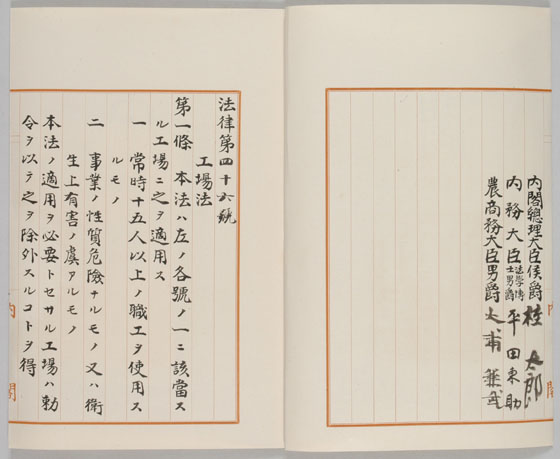 内閣總理大臣侯爵桂太郎
内務大臣法學博士男爵平田東助
農商務大臣男爵大浦兼武
内閣
法律第四十六號
工場法
第一條 本法ハ左ノ各號ノ一ニ該當ス
ル工場ニ之ヲ適用ス
一 常時十五人以上ノ職工ヲ使用ス
ルモノ
二 事業ノ性質危險ナルモノ又ハ衛
生上有害ノ虞アルモノ
本法ノ適用ヲ必要トセサル工場ハ勅
令ヲ以テ之ヲ除外スルコトヲ得
内閣